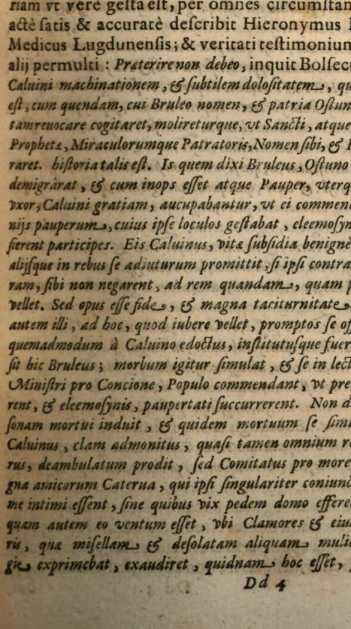 riam vt vere gesta est, per omnes circumstan
actè satis & accuratè describit Hieronymus
Medicus Lugdunensis; & veritati testimonium
alij permulti : Præterire non debeo, inquit Bolsec
Caluini machinationem, & subtilem dolositatem, qu
est, cum quendam, cui Bruleo nomen, & patria Ostun
tamreuocare cogitaret, molireturque, vt Sancti, atque
Propheta, Miraculorumque Patratoris, Nomen sibi, &
raret. historia talis est. Is quem dixi Bruleus, Ostuno
demigrârat, & cum inops esset atque Pauper, vterq
vxor, Caluini gratiam, aucupabantur, vt ei commend
nijs pauperum, cuius ipse loculos gestabat, eleemosyn
fierent participes. Eis Caluinus, vitæ subsidia benignè
alijsque in rebus se adiuturum promittit, si ipsi contra
ram, sibi non negarent, ad rem quandam, quam p
vellet. Sed opus esse fide, & magna taciturnitate
autem illi, ad hoc, quod iubere vellet, promptos se of
quemadmodum à Caluino edoctus, institutusque fuer
sit hic Bruleus; morbum igitur simulat, & se in lect
Ministri pro Concione, Populo commendant, vt pre
rent, & eleemosynis, paupertati succurrerent. Non d
sonam mortui induit, & quidem mortuum se simu
Caluinus, clam admonitus, quasi tamen omnium re
rus, deambulatum prodit, sed Comitatus pro more
gna amicorum Caterua, qui ipsi singulariter coniunc
me intimi essent, sine quibus vix pedem domo effere
quam autem eo ventum esset, vbi Clamores & eiu
tus, quæ misellam & desolatam aliquam mulie
gie exprimebat, exaudiret, quidnam hoc esset,
Dd 4